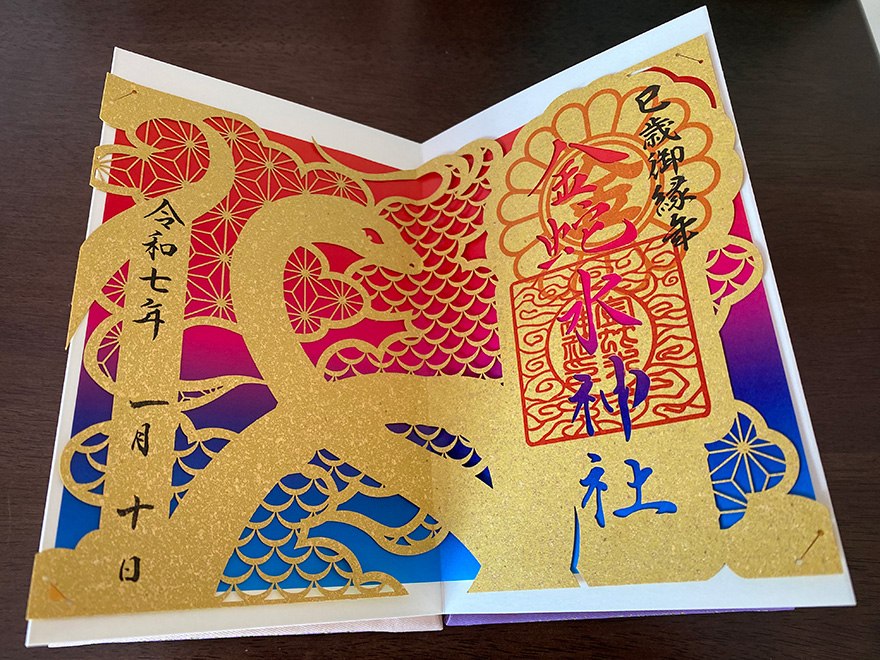 巳歳御縁年
金蛇水神社
令和七年 一月 十日